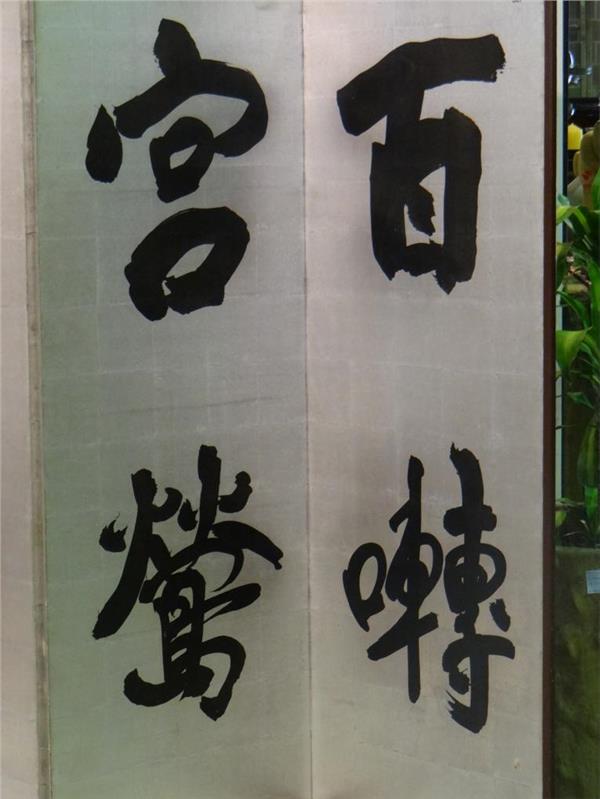 百囀
宮鶯